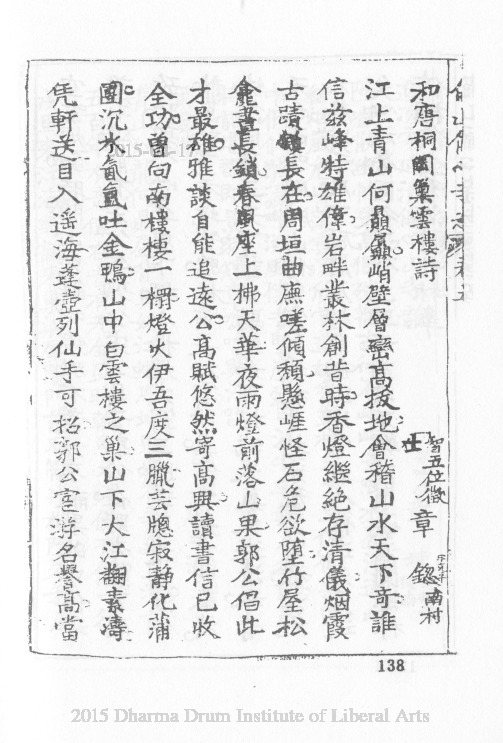 和唐桐園巢雲樓詩
智五位徵 章鍃 南村
江上青山何贔屭峭壁層巒高拔地會稽山水天下奇誰
信茲峰特雄偉岩畔叢林創昔時香燈繼絕存清儀烟霞
古蹟鎮長在周垣曲廡嗟傾頹懸崖怪石危欲墮竹屋松
龕晝長鎖春風座上拂天華夜雨燈前落山果郭公倡此
才最雄雅談自能追遠公高賦悠然寄高興讀書信已收
全功曾向南樓棲一榻燈火伊吾度三臘芸牕寂靜化蒲
團沉水氤氳吐金鴨山中白雲樓之巢山下大江翻素濤
凭軒送目入遥海蓬壺列仙手可招郭公宦游名譽高當
138
2015 Dharma Drum Institute of Liberal Arts